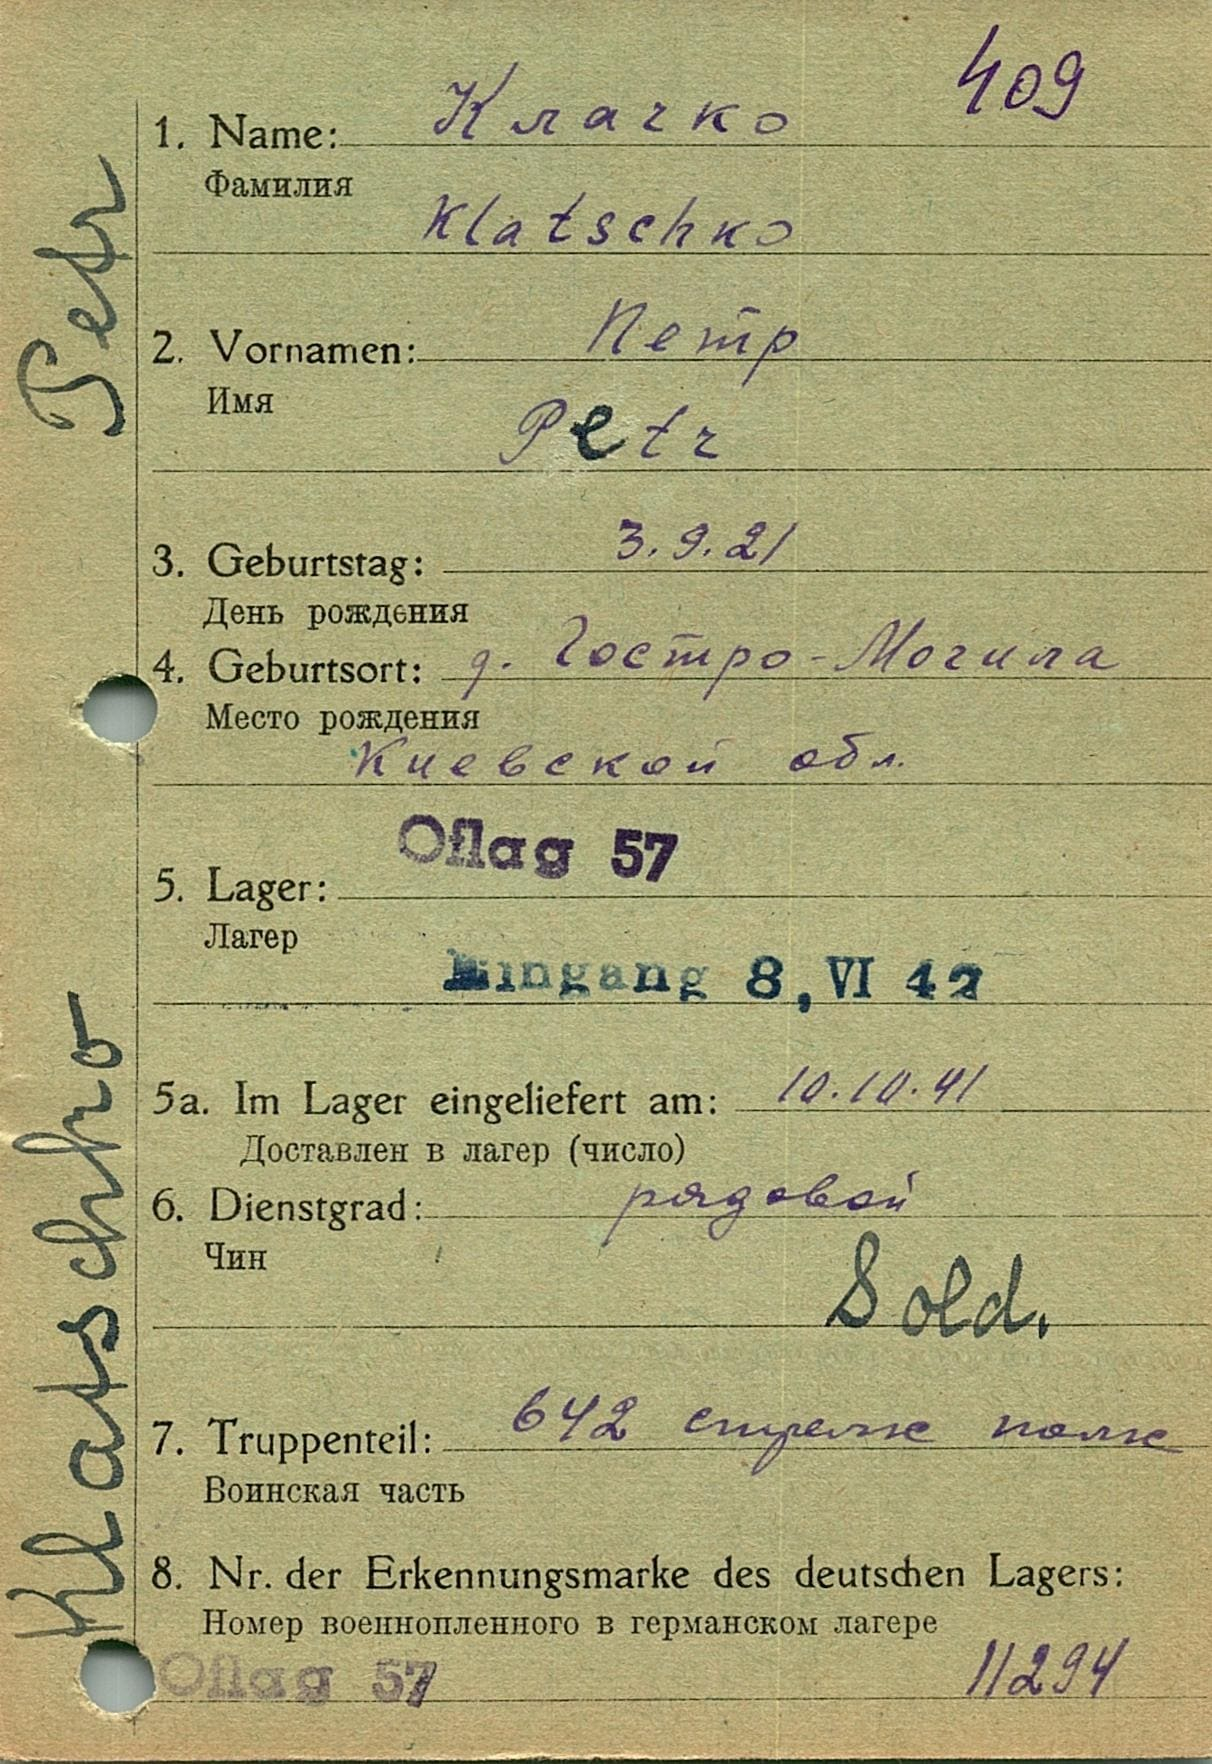 409
1. Name: Клачко
Фамилия
Klatschko
2. Vornamen: Петр
Имя
Petr
3. Geburtstag: 3.9.21
День рождения
4. Geburtsort: д. Гостро-Могила
Место рождения
Киевской обл.
Oflag 57
5. Lager:
Лагер
Eingang 8, VI 42
5a. Im Lager eingeliefert am: 10.10.41
Доставлен в лагер (число)
6. Dienstgrad: рядовой
Чин
Sold.
7. Truppenteil: 642 стрелк полк
Воинская часть
8. Nr. der Erkennungsmarke des deutschen Lagers:
Номер военнопленного в германском лагере
Oflag 57 11294
Klatschko Petr